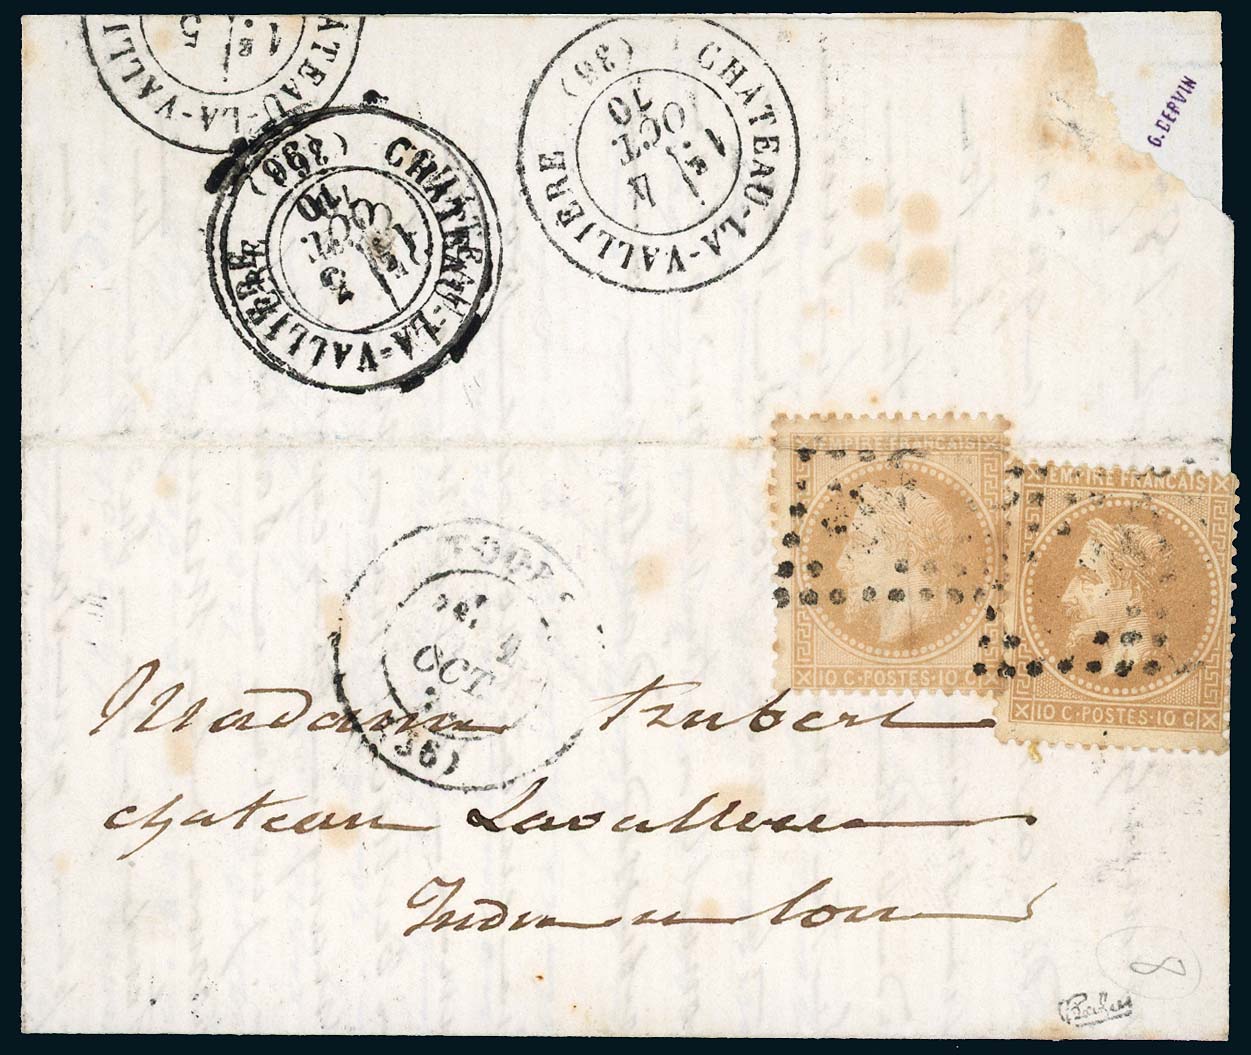 CHATEAU-LA-VALLI
5
1
CHATEAU-LA-VALLIERE (36)
OCT
70
CHATEAU-LA-VALLIERE (36)
5
OCT
70
G. DERVIN
EMPIRE FRANCAIS
10 C · POSTES · 10 C
EMPIRE FRANCAIS
10 C · POSTES · 10 C
OCT
(36)
Madame Hubert
chateau Lavalliere
Indre en loire
8